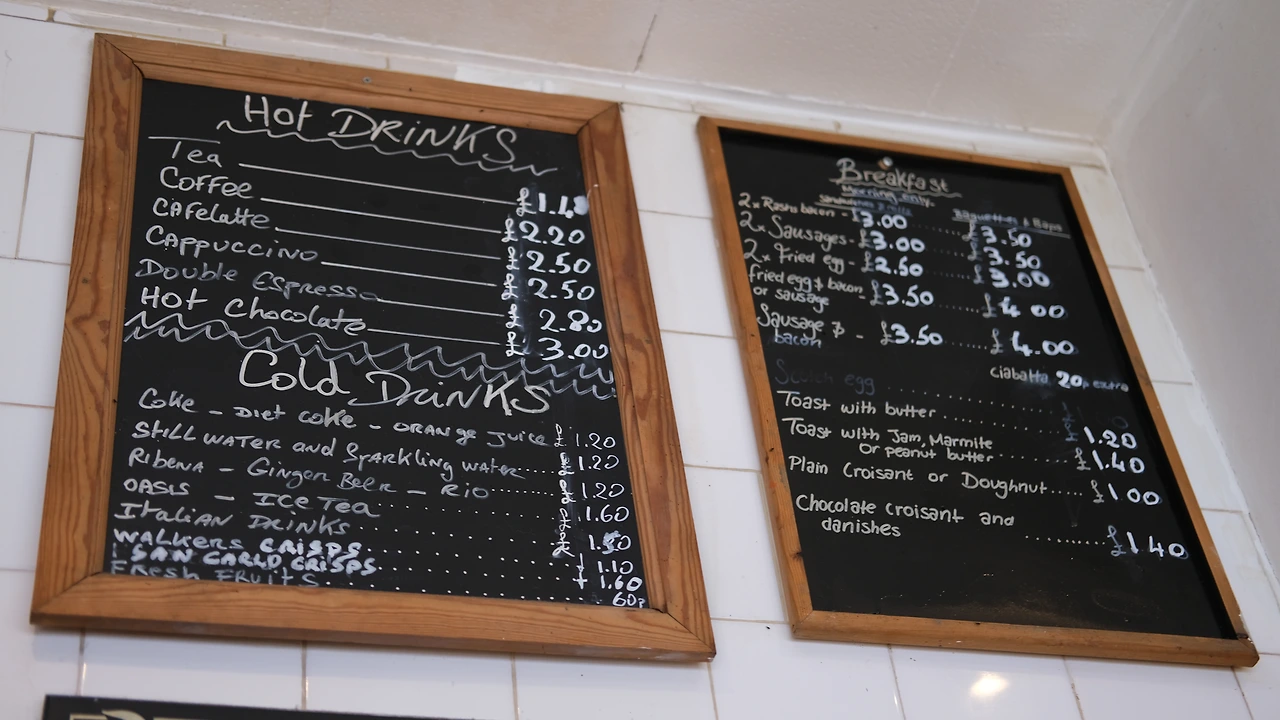 Hot DRiNKS
Tea £1.
Coffee £2.20
CAFeLatte £2.50
CAPPUCCINO £2.50
Double Espresso £2.80
Hot Chocolate £3.00
Cold DRiNKS
Coke - Diet coke - ORANge Juice £1.20
STiLL WATER and SPARKling water £1.20
RiBeNA - Ginger BeeR - Rio £1.20
OASIS - ICe TeA £1.60
ITaliAN DRINKS £1.50
WALKERS CRISPS £1.10
SAN CARLO CRISPS £1.60
FResh FRUiTS 60p
Breakfast
Morning only.
Baguettes & Baps
2x Rashs bacon - £3.00 £3.50
2x Sausages - £3.00 £3.50
2x Fried egg - £2.50 £3.00
fried egg & bacon
or sausage - £3.50 £4.00
Sausage &
bacon - £3.50 £4.00
ciabatta 20p extra
Scotch egg
Toast with butter £1.20
Toast with Jam, Marmite
Or peanut butter £1.40
Plain Croisant or Doughnut £1.00
Chocolate croisant and
danishes £1.40